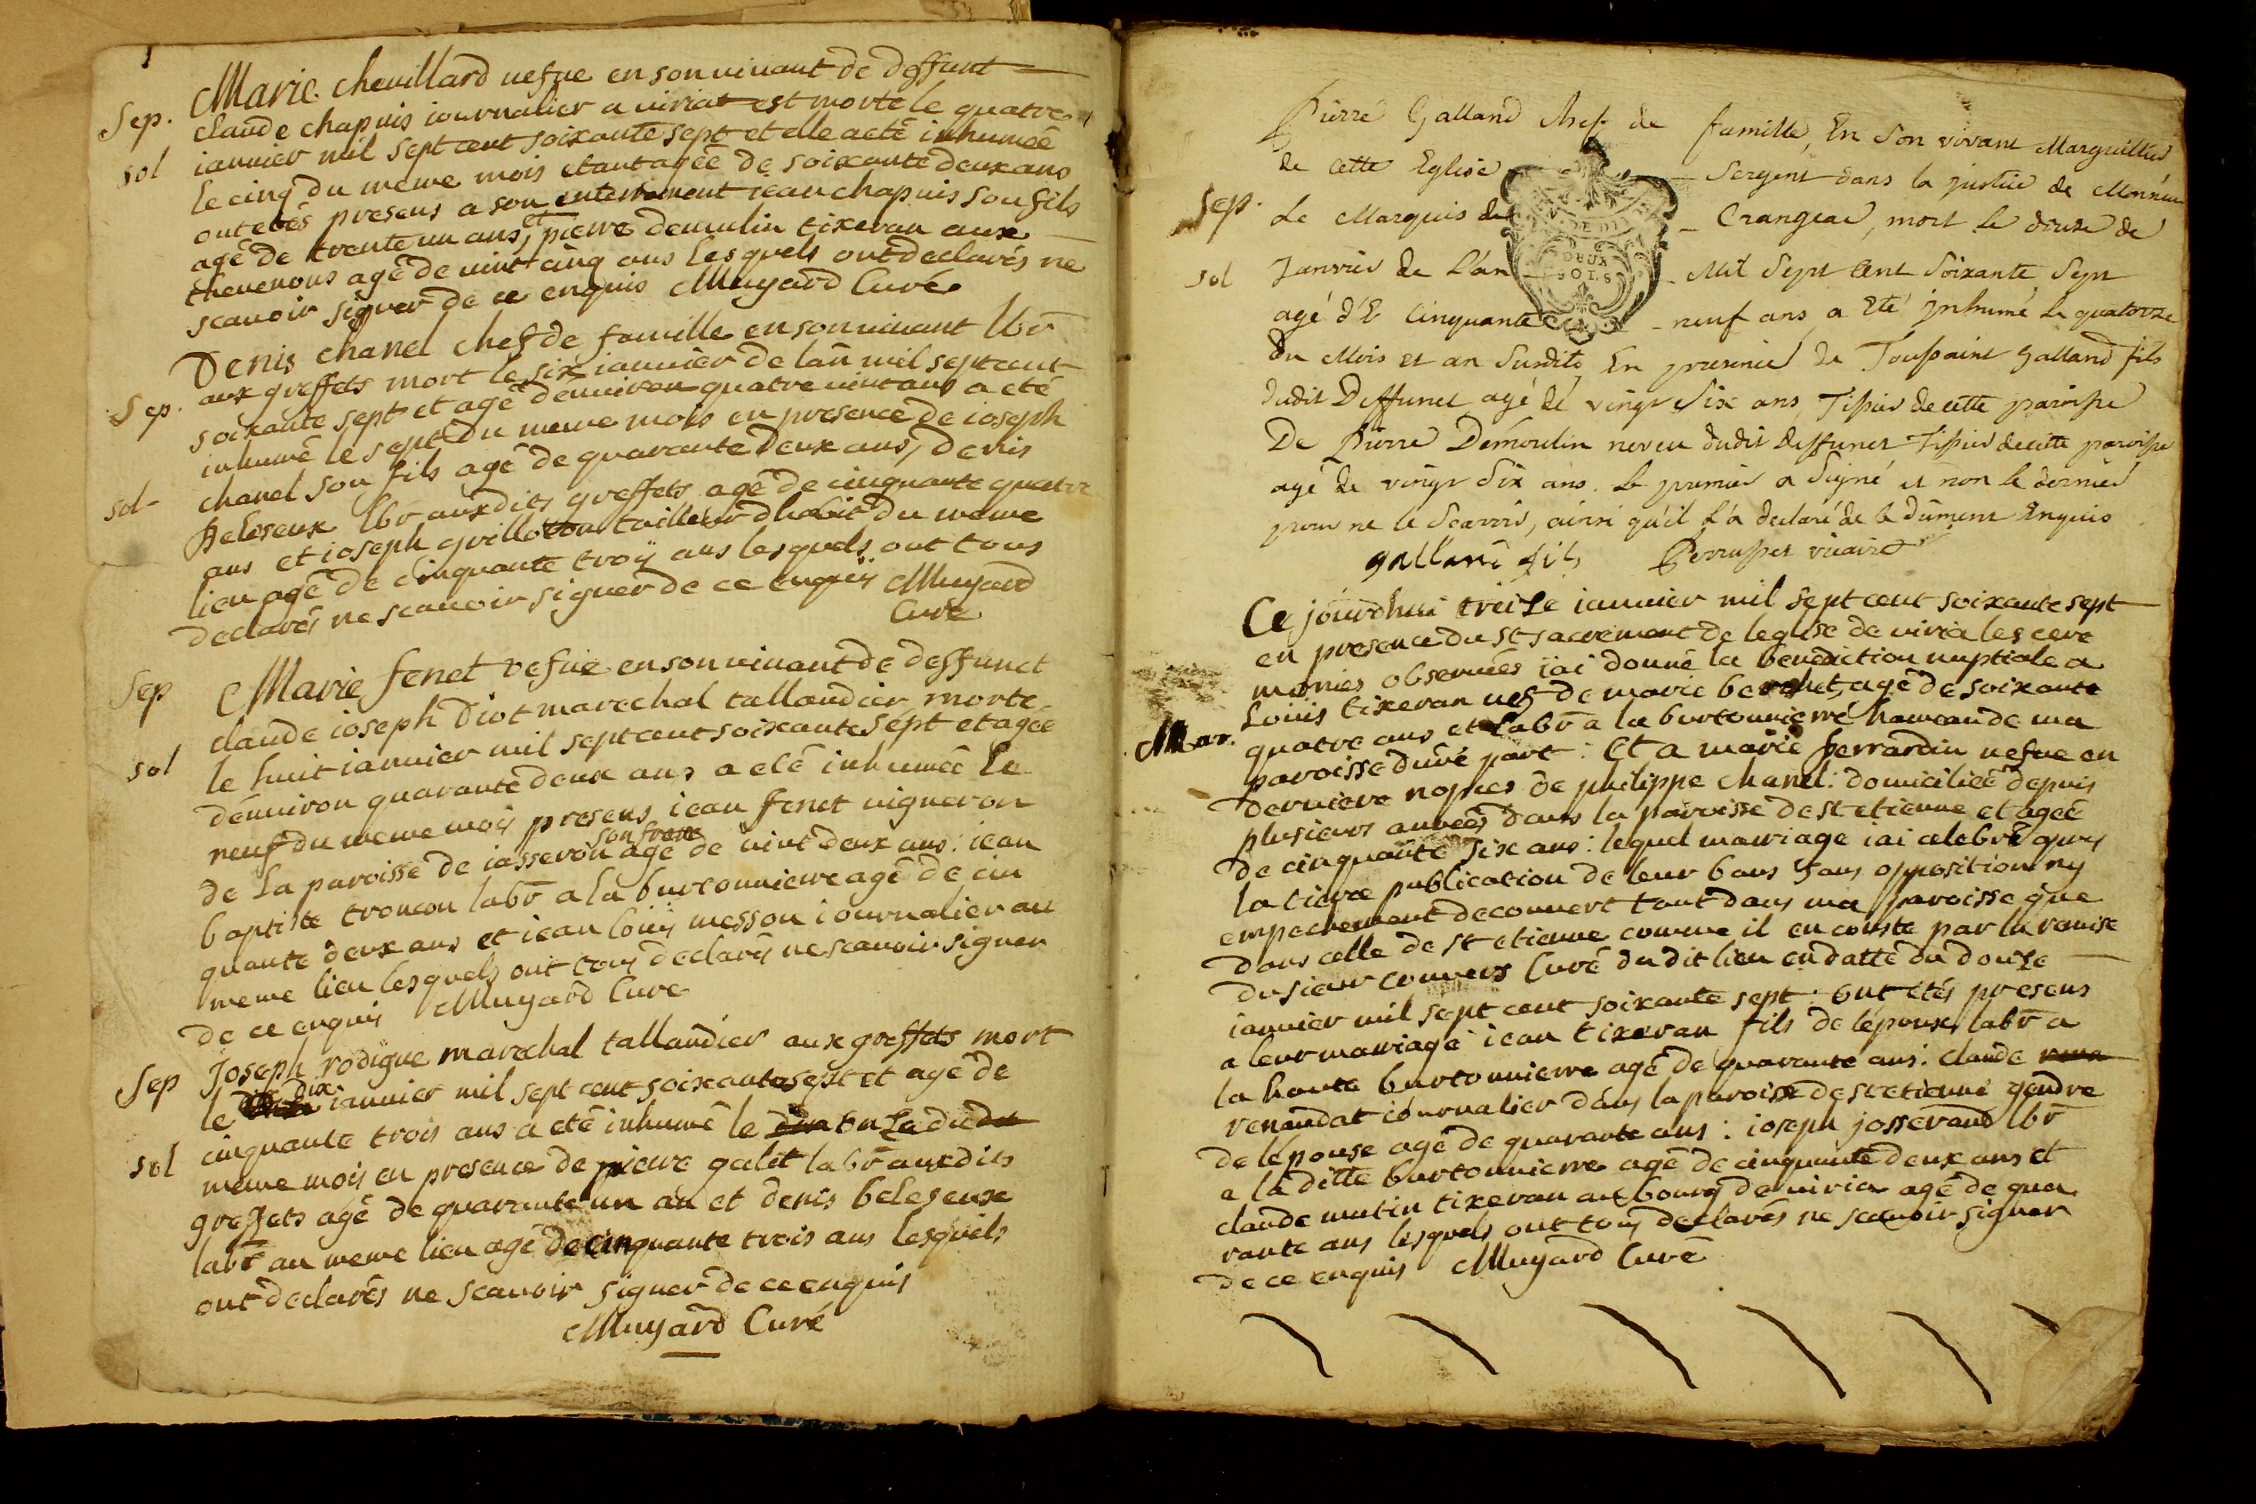 Marie chevillard vefve en son vivant de deffunt
Sep. claude chapuis journalier a viriat est morte le quatre
sol ianvier mil sept cent soixante sept et elle a etê inhumeê
le cinq du meme mois etant ageê de soixante deux ans
ont etés presens a son enterrement iean chapuis son fils
agê de trente un ans, et pierre demulin tixeran aux
thevenons agê de vint cinq ans lesquels ont declarés ne
scavoir signer de ce enquis Muyard Curé
Denis chanel chef de famille en son vivant lbr
aux greffets mort le six ianvier de lan mil sept cent
Sep. soixante sept et agê denviron quatre vint ans a etê
inhumê le sept du meme mois en presence de ioseph
chanel son fils agê de quarante deux ans, denis
sol beleseux lbr auxdits greffets agê de cinquante quatre
ans et ioseph grilloton tailleur dhabit du meme
lieu agê de cinquante troÿ ans lesquels ont tous
declarés ne scavoir signer de ce enquis Muyard
Curé
Sep Marie fenet vefve en son vivant de deffunct
claude ioseph diot marechal tallandier morte
sol le huit ianvier mil sept cent soixante sept et ageê
denviron quarante deux ans a etê inhumeê le
neuf du meme mois presens iean fenet vigneron
son frere
de la paroisse de iasseron agê de vint deux ans : iean
baptiste troncon labr a la burtonniere agê de cin
quante deux ans et iean loüis messon iournalier au
meme lieu lesquels ont tous declarés ne scavoir signer
de ce enquis Muyard Curé
Sep Joseph rodigue marechal tallandier aux greffets mort
dix
le ianvier mil sept cent soixante sept et agê de
cinquante trois ans a etê inhumê le onze du
sol meme mois en presence de pierre galet labr auxdits
greffets agê de quarante un an et denis beleseux
labr au meme lieu agê de cinquante trois ans lesquels
ont declarés ne scavoir signer de ce enquis
Muyard Curé
Pierre Galland chef de famille, En Son vivant Marguillier
de cette Eglise Sergent dans la justice de Monsieur
Sep. Le Marquis de Crangeac, mort le douze de
DEUX
SOLS
sol Janvier de L'an Mil Sept Cent Soixante Sept
agé d'E Cinquante neuf ans a Eté jnhumé Le quatorze
Du Mois et an Susdits En presence de Toussaint Galland fils
dudit Deffunct agé de vingt Six ans, Tissier de cette paroisse
De Pierre Demoulin neveu dudit deffunct Tissier de cette paroisse
agé de vingt Six ans. Le premier a Signé et non le dernier
pour ne le Scavoir, ainsi qu'il L'a declaré de ce dûment Enquis
galland fils Perrusset vicaire
Ce jourdhui treize ianvier mil sept cent soixante sept
en presence du st sacrement de leglise de viria les cere
monies observeés iai donné la benediction nuptiale a
Louis tixeran vef de marie bernet, agê de soixante
Mar. quatre ans et labr a la burtonnierre hameau de ma
paroisse dune part : Et a marie ferrardin vefve en
derniere nopces de philippe chanel : domicilieê depuis
plusieurs anneés dans la paroisse de st etienne et ageê
de cinquante six ans : lequel mariage iai celebrê apres
la tierce publication de leur bans sans opposition ny
empechement decouvert tant dans ma paroisse que
dans celle de st etienne comme il en conste par la remise
du sieur convers Curé dudit lieu en datte du douze
ianvier mil sept cent soixante sept : ont etés presens
a leur mariage iean tixeran fils de lepoux labr a
la haute burtonnierre agê de quarante ans : claude
renaudat iournalier dans la paroisse de st etienne gendre
de lepouse agê de quarante ans : ioseph josserand lbr
a la ditte burtonnierre agê de cinquante deux ans et
claude mutin tixeran au bourg de viria agê de qua
rante ans lesquels ont tous declarés ne scavoir signer
de ce enquis Muyard Curé